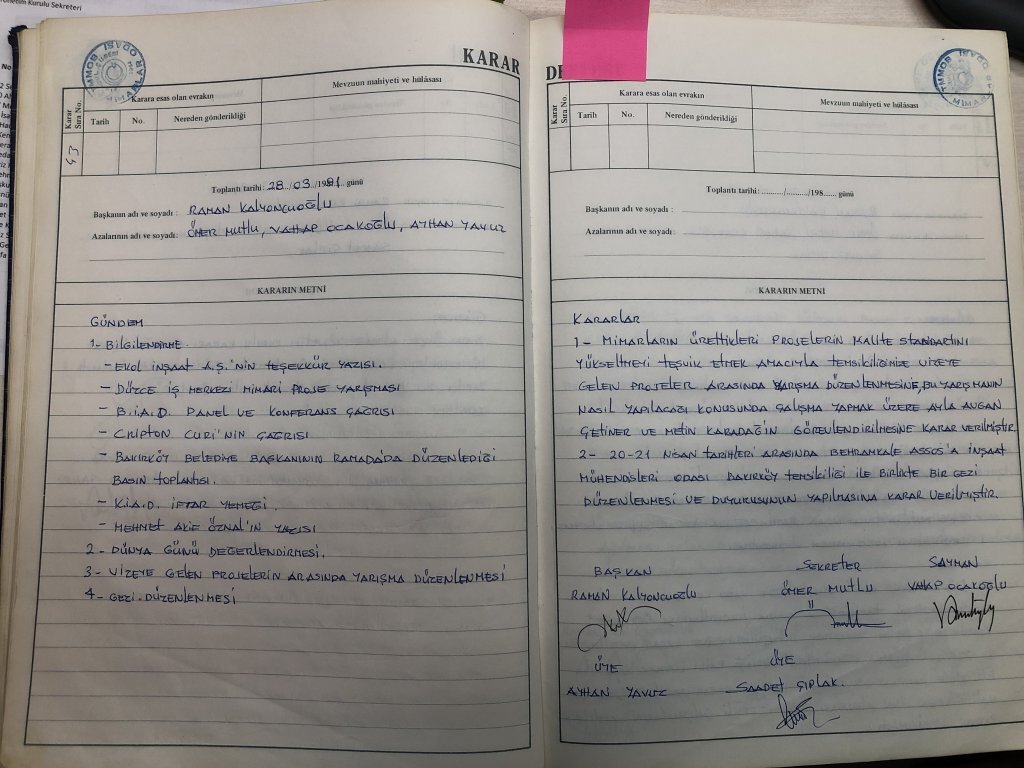 önetim Kurulu Sekreteri
KARAR
TMMOB MİMARLAR ODASI
Karar Sıra No.
Karara esas olan evrakın
Mevzuun mahiyeti ve hülâsası
Tarih No. Nereden gönderildiği
43
Toplantı tarihi: 28../03../1991.. günü
Başkanın adı ve soyadı : RAMAN KALYONCUOĞLU
Azalarının adı ve soyadı: ÖMER MUTLU, VAHAP OCAKOĞLU, AYHAN YAVUZ
KARARIN METNİ
GÜNDEM
1- BİLGİLENDİRME
- EKOL İNŞAAT A.Ş.'NİN TEŞEKKÜR YAZISI.
- DÜZCE İŞ MERKEZİ MİMARİ PROJE YARIŞMASI
- B.İ.A.D. PANEL VE KONFERANS ÇAĞRISI
- CRIPTON CURİ'NİN ÇAĞRISI
- BAKIRKÖY BELEDİYE BAŞKANININ RAMADA'DA DÜZENLEDİĞİ
BASIN TOPLANTISI.
- K.İ.A.D. İFTAR YEMEĞİ.
- MEHMET AKİF ÖZNAL'IN YAZISI
2- DÜNYA GÜNÜ DEĞERLENDİRMESİ.
3- VİZEYE GELEN PROJELERİN ARASINDA YARIŞMA DÜZENLENMESİ
4- GEZİ DÜZENLENMESİ
DE
TMMOB MİMARLAR ODASI
Karar Sıra No.
Karara esas olan evrakın
Mevzuun mahiyeti ve hülâsası
Tarih No. Nereden gönderildiği
Toplantı tarihi: ........../........../198...... günü
Başkanın adı ve soyadı :
Azalarının adı ve soyadı:
KARARIN METNİ
KARARLAR
1- MİMARLARIN ÜRETTİKLERİ PROJELERİN KALİTE STANDARTINI
YÜKSELTMEYİ TEŞVİK ETMEK AMACIYLA TEMSİLCİLİĞİMİZE VİZEYE
GELEN PROJELER ARASINDA YARIŞMA DÜZENLENMESİNE, BU YARIŞMANIN
NASIL YAPILACAĞI KONUSUNDA ÇALIŞMA YAPMAK ÜZERE AYLA AVGAN
ÇETİNER VE METİN KARADAĞ'IN GÖREVLENDİRİLMESİNE KARAR VERİLMİŞTİR.
2- 20-21 NİSAN TARİHLERİ ARASINDA BEHRAMKALE ASSOS'A İNŞAAT
MÜHENDİSLERİ ODASI BAKIRKÖY TEMSİLCİLİĞİ İLE BİRLİKTE BİR GEZİ
DÜZENLENMESİ VE DUYURUSUNUN YAPILMASINA KARAR VERİLMİŞTİR.
BAŞKAN SEKRETER SAYMAN
RAMAN KALYONCUOĞLU ÖMER MUTLU VAHAP OCAKOĞLU
ÜYE ÜYE
AYHAN YAVUZ SAADET ÇIPLAK.